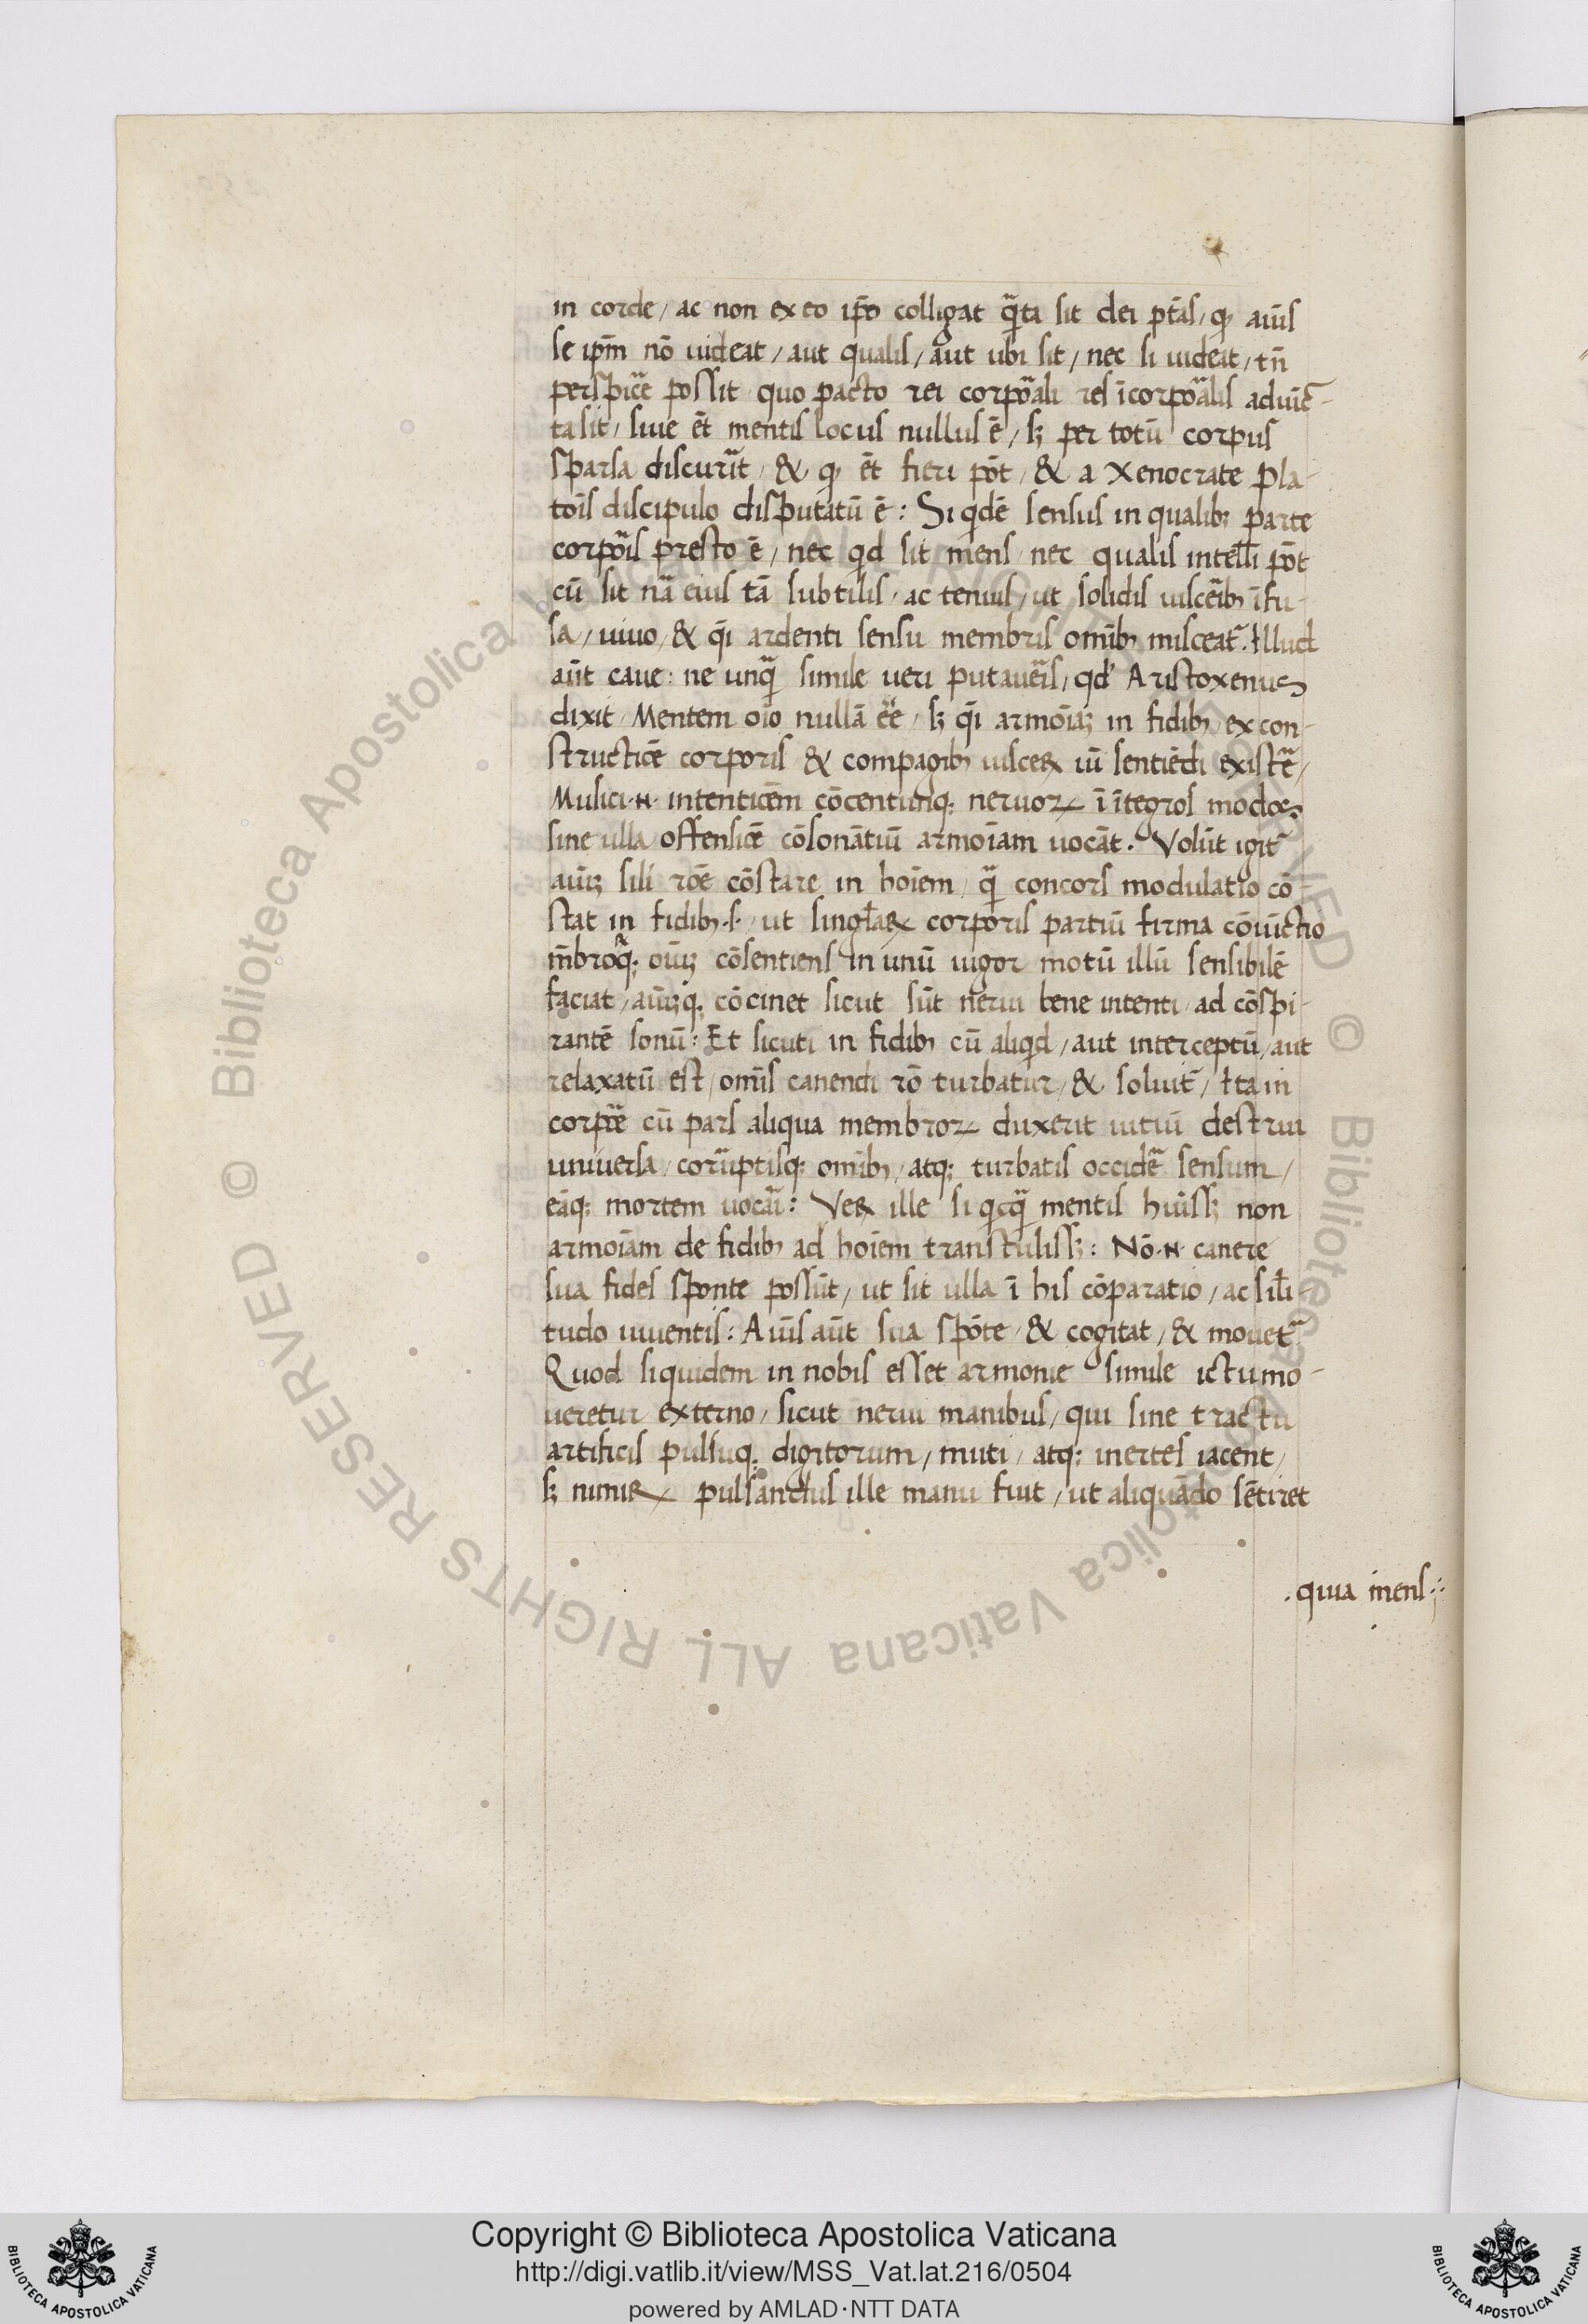 in corde / ac non ex eo ip̄o colligat q̄ͣta sit dei ptās / ꝙ aiūs
se ipm̄ nō uideat / aut qualis / aut ubi sit / nec si uideat / tn̄
perspice᷑ possit quo pacto rei corpoᷓali res īcorpoᷓalis adiūc-
ta sit / siue ēt mentis locus nullus ē / sꝫ per totū corpus
sparsa discurit᷑ / & ꝙ ēt fieri pōt / & a Xenocrate Pla-
tōis discipulo disputatū ē : Si qͥdē sensus in qualibꝫ parte
corpoᷓis presto ē / nec qͥd sit mens nec qualis intelli pōt
cū sit nā eius tā subtilis / ac tenuis / ut solidis uiscēibꝫ īfu-
sa / uiuo / & qͣi ardenti sensu membris omībꝫ misceat᷑. Illud
aūt caue : ne unqͣ̄ simile ueri putauēis / qd' Aristoxenus
dixit / Mentem oīo nullā ēe᷑ / sꝫ qͣi armoīaꝫ in fidibꝫ ex con-
structiōe corporis & compagibꝫ uisceꝝ uī sentiēdi existe᷑ /
Musici ·N· intentiōem cōcentūqꝫ neruoꝝ ī ītegros modos
sine ulla offensiōe cōsonātiū armoīam uocāt. Volūt igit᷑
aīuꝫ sili rōe cōstare in hoīem / qͣ concors modulatio cō-
stat in fidibꝫ ·ſ· ut singlaꝝ corporis partiū firma cōiūctio
m̄broꝝqꝫ oīuꝫ cōsentiens in unū uigor motū illū sensibilē
faciat / aīuꝫqꝫ cōcinet sicut sūt nerui bene intenti ad cōspi-
rantē sonū : Et sicuti in fidibꝫ cū aliqͥd / aut interceptū / aut
relaxatū est / omīs canendi rō turbatur / & soluit᷑ / Ita in
corpoᷓe cū pars aliqua membroꝝ duxerit uitiū destrui
uniuersa / coruptisqꝫ omībꝫ / atqꝫ turbatis occide᷑ sensum /
eāqꝫ mortem uocaᷓi : Veꝝ ille si qͥcqͣ̄ mentis huissꝫ non
armoīam de fidibꝫ ad hoīem transtulissꝫ : Nō ·N· canere
sua fides sponte possūt / ut sit ulla ī his cōparatio / ac sili-
tudo uiuentis : Aiūs aūt sua spōte / & cogitat / & mouet᷑
Quod siquidem in nobis esset armonie simile ictu mo-
ueretur externo / sicut nerui manibus / qui sine tractu
artificis pulsuqꝫ digitorum / muti / atqꝫ inertes iacent /
sꝫ nimiꝝ pulsandus ille manu fuit / ut aliquādo sētiret
. quia mens :
Copyright © Biblioteca Apostolica Vaticana
http://digi.vatlib.it/view/MSS_Vat.lat.216/0504
powered by AMLAD·NTT DATA
BIBLIOTECA APOSTOLICA VATICANA
BIBLIOTECA APOSTOLICA VATICANA
© Biblioteca Apostolica Vaticana ALL RIGHTS RESERVED
© Biblioteca Apostolica Vaticana ALL RIGHTS RESERVED